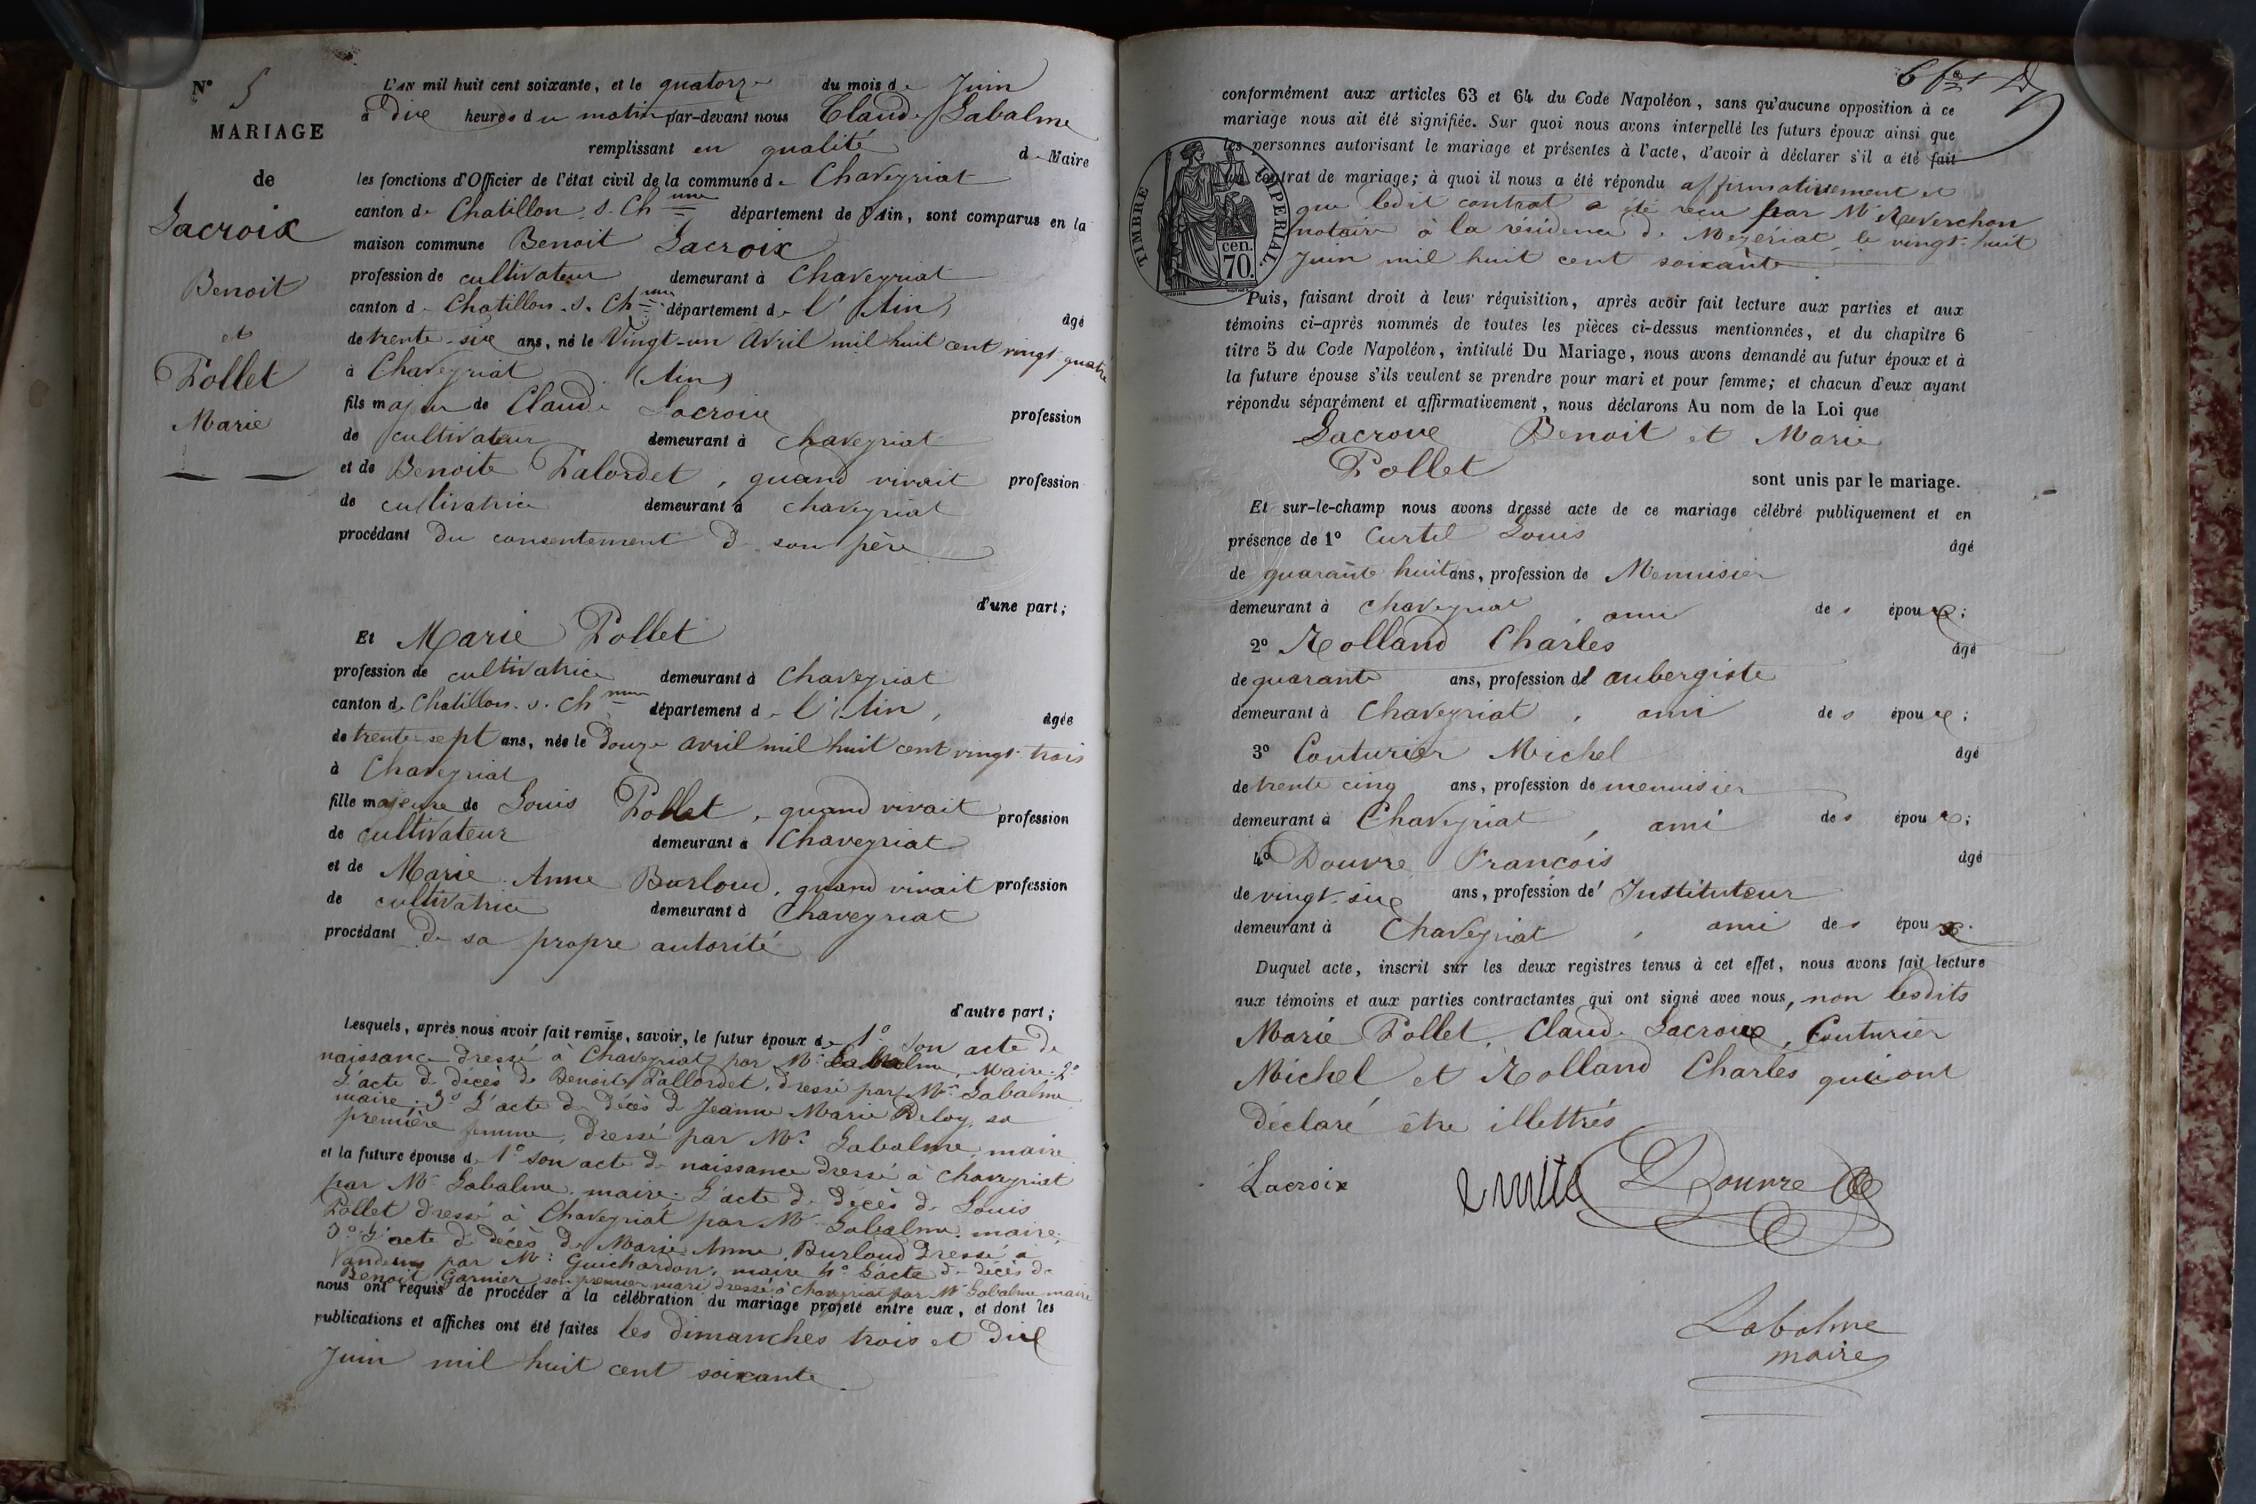 N° 5
MARIAGE
de
Lacroix
Benoit
et
Pollet
Marie
L'AN mil huit cent soixante, et le quatorze du mois de Juin
à dix heures du matin par-devant nous Claude Labalme
remplissant en qualité de Maire
les fonctions d'Officier de l'état civil de la commune de Chaveyriat
canton de Chatillon. s. Ch nne département de l'Ain, sont comparus en la
maison commune Benoit Lacroix
profession de cultivateur demeurant à Chaveyriat
canton de Chatillon. s. Ch nne département de l'Ain âgé
de trente-six ans, né le Vingt-un Avril mil huit cent vingt quatre
à Chaveyriat (Ain)
fils majeur de Claude Lacroix profession
de cultivateur demeurant à Chaveyriat
et de Benoite Palordet, quand vivait profession
de cultivatrice demeurant à Chaveyriat
procédant du consentement de son père
d'une part;
Et Marie Pollet
profession de cultivatrice demeurant à Chaveyriat
canton de Chatillon. s. Ch nne département de l'Ain, âgée
de trente-sept ans, née le Douze avril mil huit cent vingt-trois
à Chaveyriat
fille majeure de Louis Pollet, quand vivait profession
de cultivateur demeurant à Chaveyriat
et de Marie Anne Burloud, quand vivait profession
de cultivatrice demeurant à Chaveyriat
procédant de sa propre autorité
d'autre part;
Lesquels, après nous avoir fait remise, savoir, le futur époux de 1° Son acte de
naissance dressé à Chaveyriat par Mr Labalme, Maire. 2°
L'acte de décès de Benoite Pallordet, dressé par Mr Labalme
maire. 3° L'acte de décès de Jeanne Marie Deloy, sa
première femme, dressé par Mr Labalme maire
et la future épouse de 1° son acte de naissance dressé à Chaveyriat
par Mr Labalme, maire. L'acte de décès de Louis
Pollet dressé à Chaveyriat par Mr Labalme, maire.
3° L'acte de décès de Marie Anne Burloud dressé à
Vandeins par Mr Guichardon, maire 4° L'acte de décès de
Benoit Garnier son premier mari dressé à Chaveyriat par Mr Labalme maire
nous ont requis de procéder à la célébration du mariage projeté entre eux, et dont les
publications et affiches ont été faites les dimanches trois et dix
Juin mil huit cent soixante.
6
TIMBRE IMPERIAL.
70. cen.
conformément aux articles 63 et 64 du Code Napoléon, sans qu'aucune opposition à ce
mariage nous ait été signifiée. Sur quoi nous avons interpellé les futurs époux ainsi que
les personnes autorisant le mariage et présentes à l'acte, d'avoir à déclarer s'il a été fait
un contrat de mariage; à quoi il nous a été répondu affirmativement et
que ledit contrat a été reçu par Mr Reverchon
notaire à la résidence de Mezériat, le vingt-huit
Juin mil huit cent soixante.
Puis, faisant droit à leur réquisition, après avoir fait lecture aux parties et aux
témoins ci-après nommés de toutes les pièces ci-dessus mentionnées, et du chapitre 6
titre 5 du Code Napoléon, intitulé Du Mariage, nous avons demandé au futur époux et à
la future épouse s'ils veulent se prendre pour mari et pour femme; et chacun d'eux ayant
répondu séparément et affirmativement, nous déclarons Au nom de la Loi que
Lacroix Benoit et Marie
Pollet sont unis par le mariage.
Et sur-le-champ nous avons dressé acte de ce mariage célébré publiquement et en
présence de 1° Curtil Louis âgé
de quarante huit ans, profession de Menuisier
demeurant à Chaveyriat ami des époux;
2° Rolland Charles âgé
de quarante ans, profession d'aubergiste
demeurant à Chaveyriat, ami des époux;
3° Couturier Michel âgé
de trente cinq ans, profession de menuisier
demeurant à Chaveyriat, ami des époux;
4° Douvre François âgé
de vingt-six ans, profession d'Instituteur
demeurant à Chaveyriat, ami des époux.
Duquel acte, inscrit sur les deux registres tenus à cet effet, nous avons fait lecture
aux témoins et aux parties contractantes qui ont signé avec nous, non lesdits
Marie Pollet, Claude Lacroix, Couturier
Michel et Rolland Charles qui ont
déclaré être illettrés
Lacroix Douvre
Labalme
maire